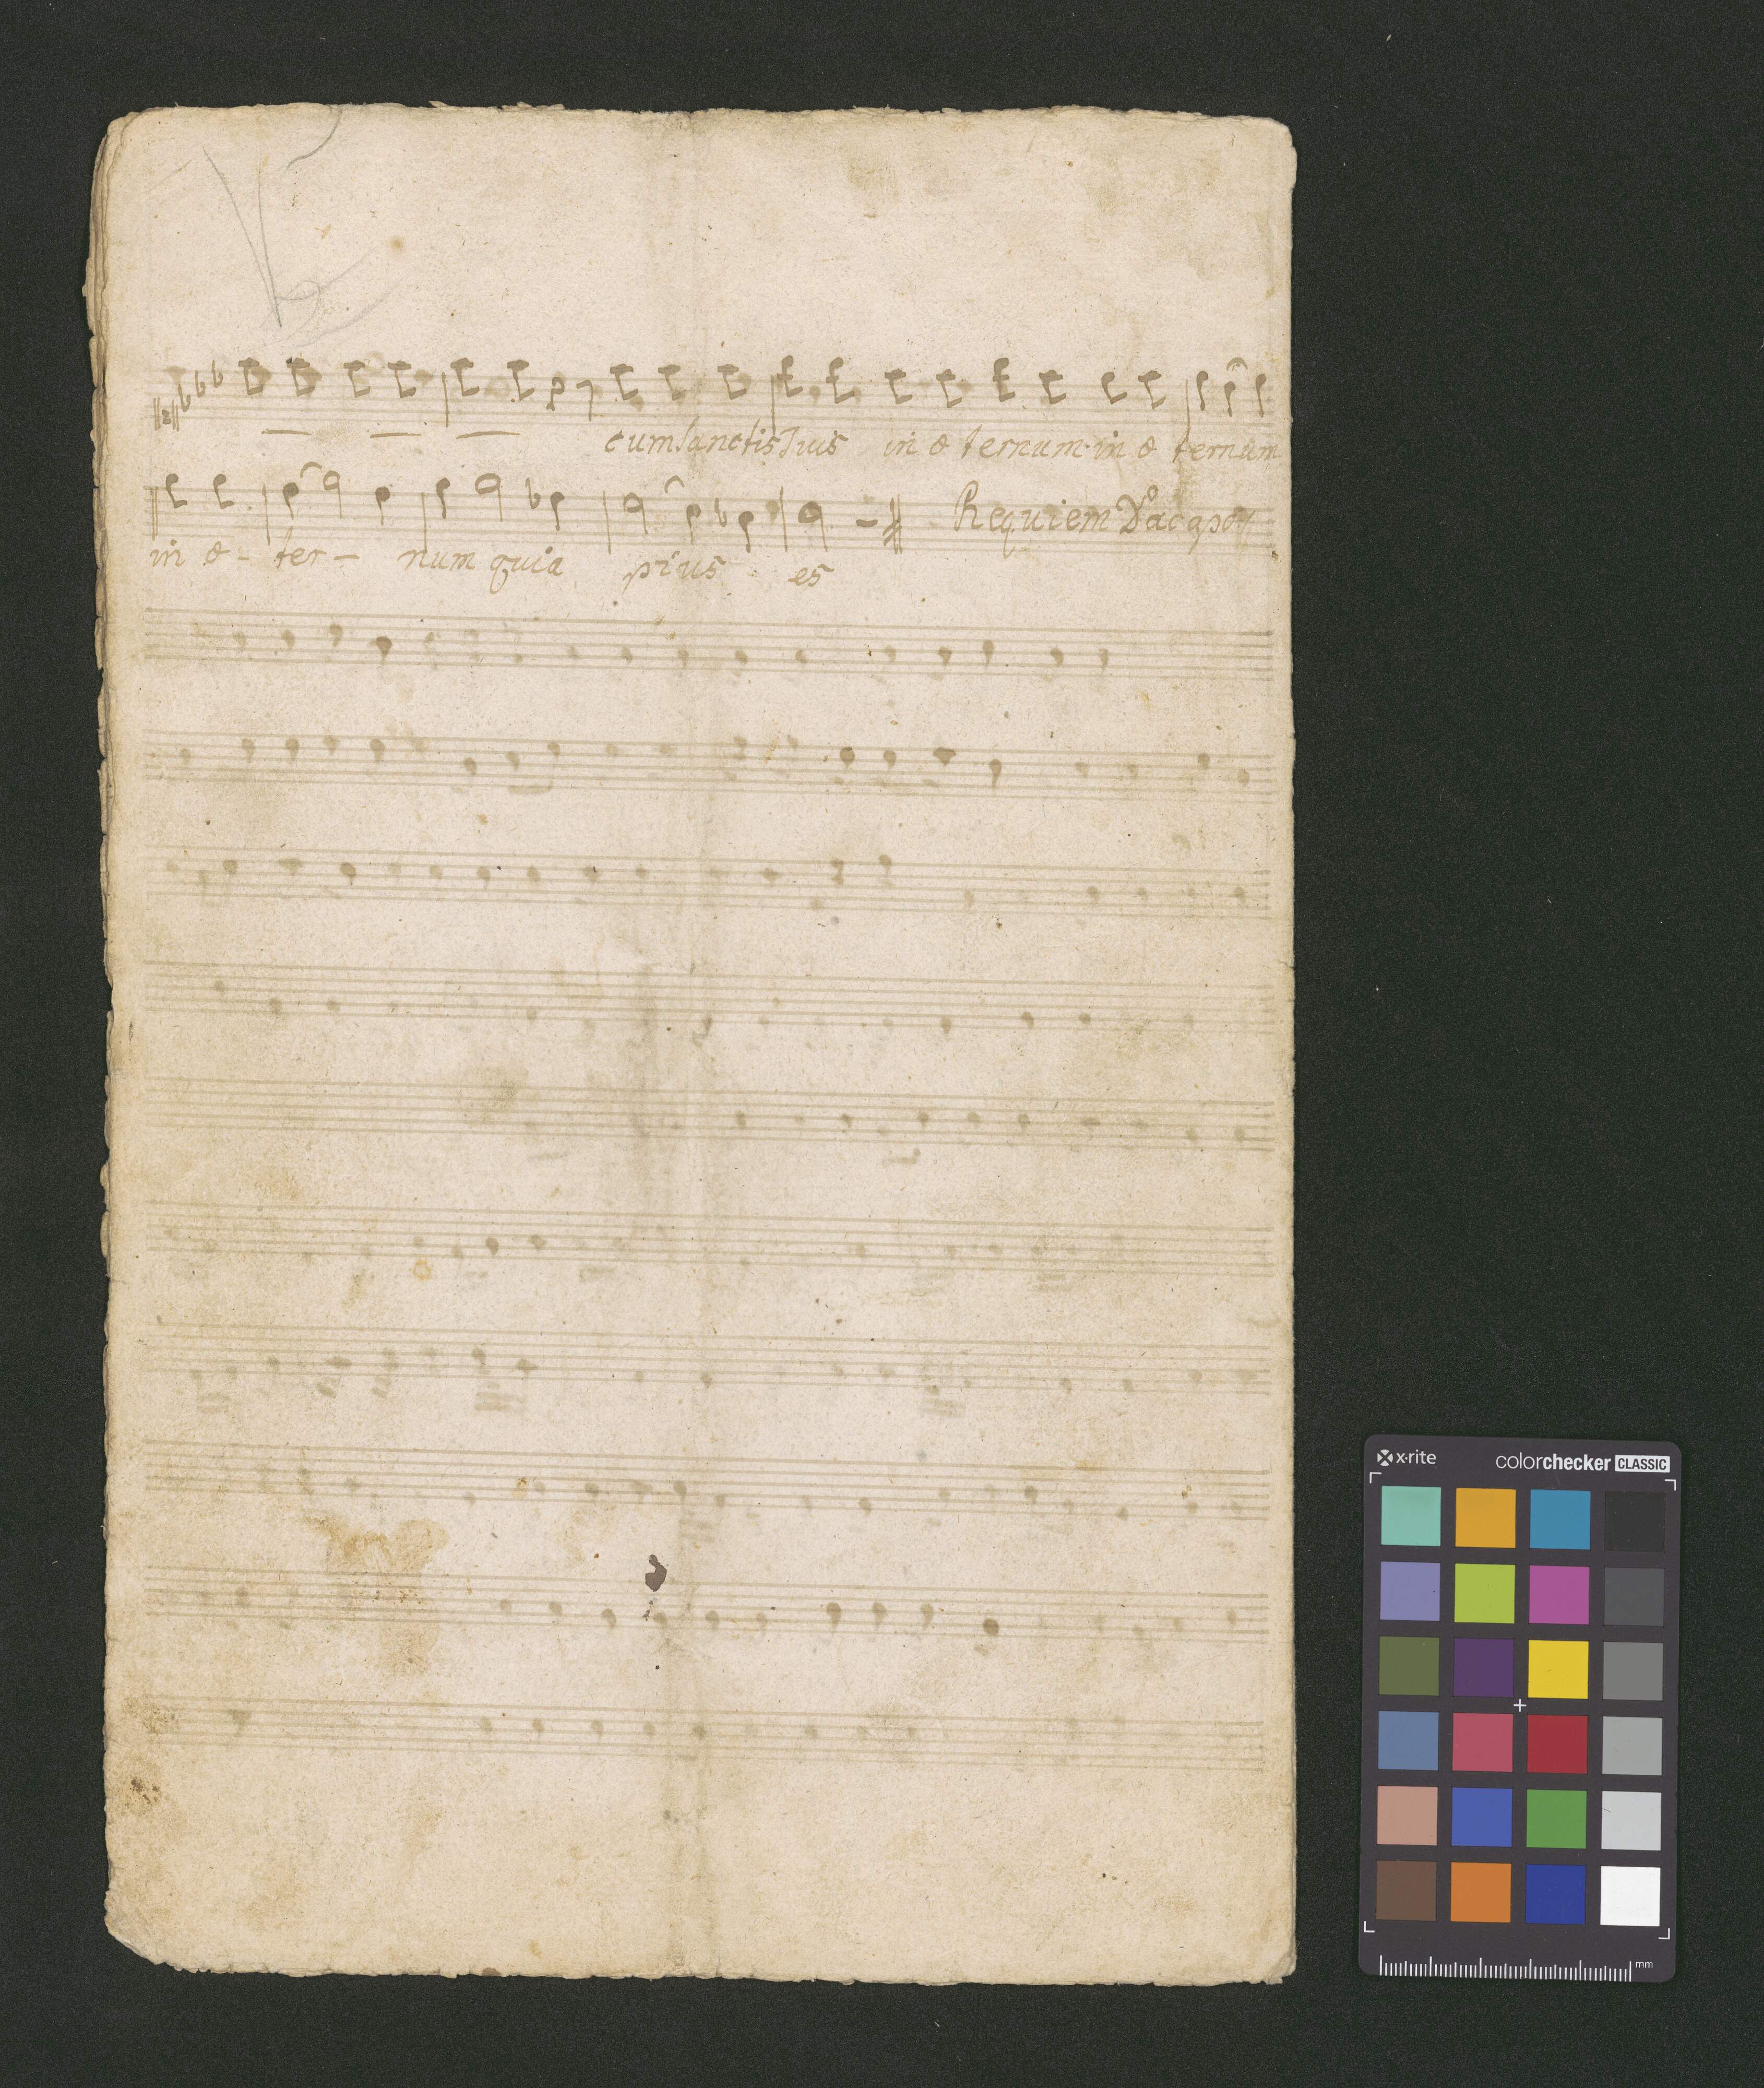 cum sanctis Tuis in æ ternum in æ ternum
Requiem Dacapo
in æ - ter - num quia pius es
x·rite colorchecker CLASSIC
mm